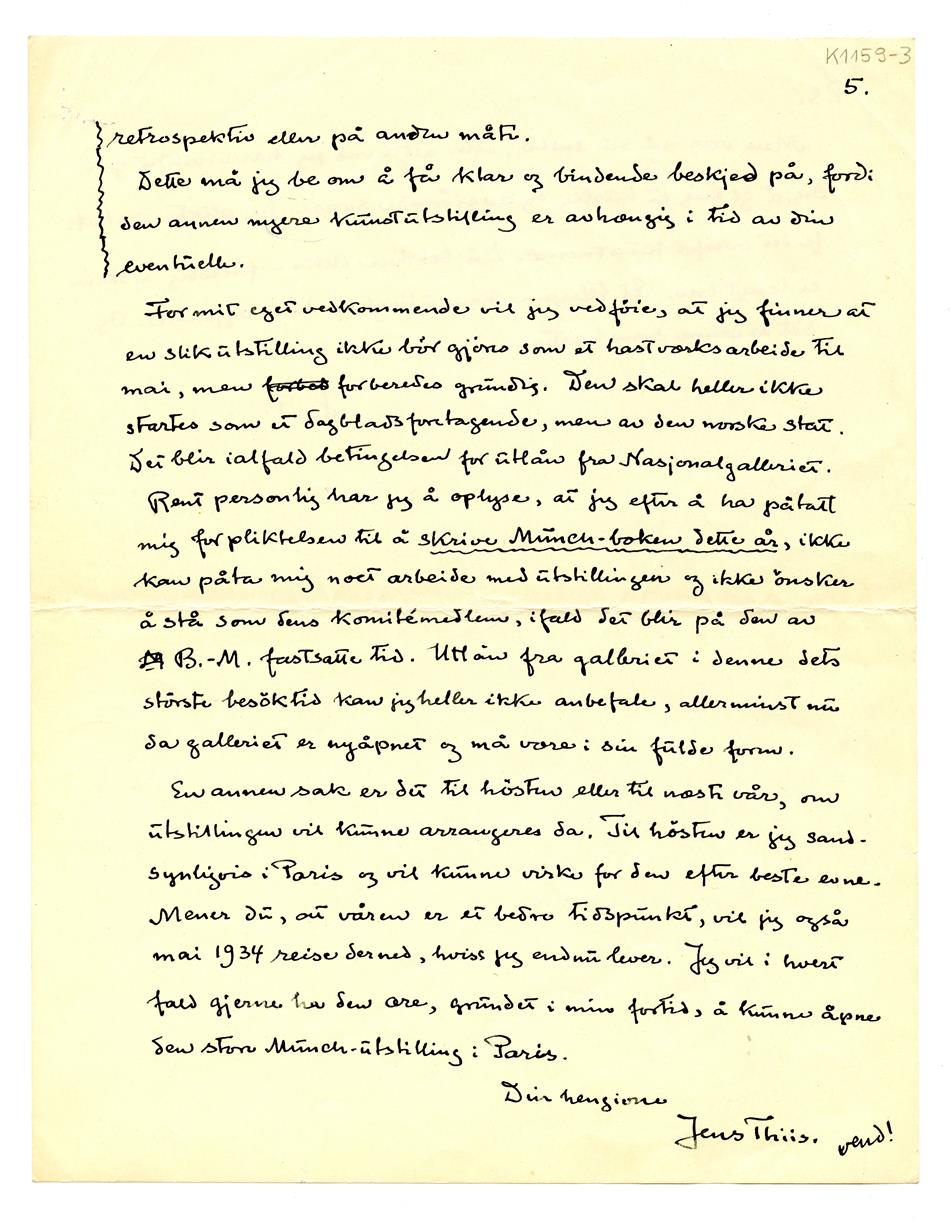 K1159-3
5.
retrospektiv eller på anden måte.
Dette må jeg be om å få klar og bindende beskjed på, fordi
den annen nyere kunstutstilling er avhængig i tid av din
eventuelle.
For mit eget vedkommende vil jeg vedföie, at jeg finner at
en slik utstilling ikke bör gjöres som et hastverksarbeide til
mai, men forbed forberedes grundig. Den skal heller ikke
startes som et dagbladsforetagende, men av den norske stat.
Det blir ialfald betingelsen for utlån fra Nasjonalgalleriet.
Rent personlig har jeg å oplyse, at jeg efter å ha påtatt
mig forpliktelsen til å skrive Munch-boken dette år, ikke
kan påta mig noet arbeide med utstillingen og ikke önsker
å stå som dens komitémedlem, ifald det blir på den av
M B.-M. fastsatte tid. Utlån fra galleriet i denne dets
störste besöktid kan jeg heller ikke anbefale, allerminst nu
da galleriet er nyåpnet og må være i sin fulde form.
En annen sak er det til hösten eller til næste vår, om
utstillingen vil kunne arrangeres da. Til hösten er jeg sand-
synligvis i Paris og vil kunne virke for den efter beste evne.
Mener du, at våren er et bedre tidspunkt, vil jeg også
mai 1934 reise derned, hviss jeg endnu lever. Jeg vil i hvert
fald gjerne ha den ære, grundet i min fortid, å kunne åpne
den store Munch-utstilling i Paris.
Din hengivne
Jens Thiis. vend!